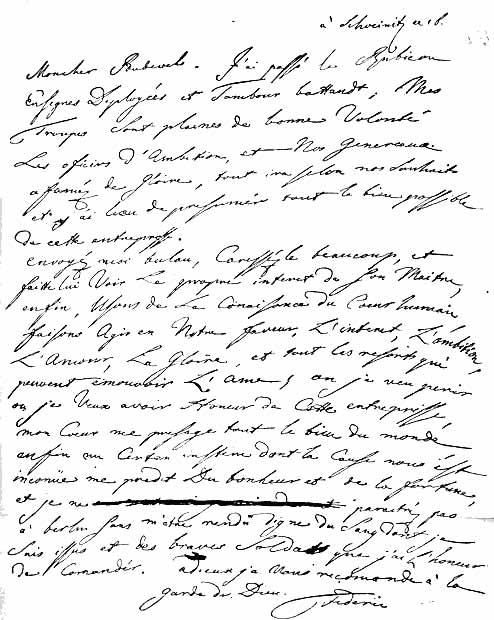 à Schweinitz ce 18.
Moncher Podewels. J'ai passé le Rubicon
Enseignes Deployées et Tambour battandt; Mes
Troupes Sont pleines de bonne Volonté
Les oficirs d'Ambition, et Nos Generaux
afamés de Gloire, tout ira selon nos Souhaits
et j'ai lieu de presumér tout le bien possible
de cette entreprisse.
envoyé moi bulau, Caressé le beaucoup, et
faitte lui Voir Le propre interet de Son Maitre,
enfin, Usons de La Conaissance du Coeur humain
faisons Agir en Notre faveur, L'interet, L'ambition,
L'Amour, La Gloire, et tout les resorts qui
peuvent émouvoir L'ame; ou je veu perir
ou je Veux avoir Honeur de Cette entreprisse
mon Coeur me presage tout le bien du monde
enfin un Certen instein dont la Cause nous est
inconüe me predit Du bonheur et de la fortune,
et je ne paraitré pas
à berlin Sans m'être rendü Digne du Sang dont je
Sais issus et des braves Soldats que j'ai l'honeur
de Comandér. adieux je Vous recomande à la
garde de Dieu. Federic